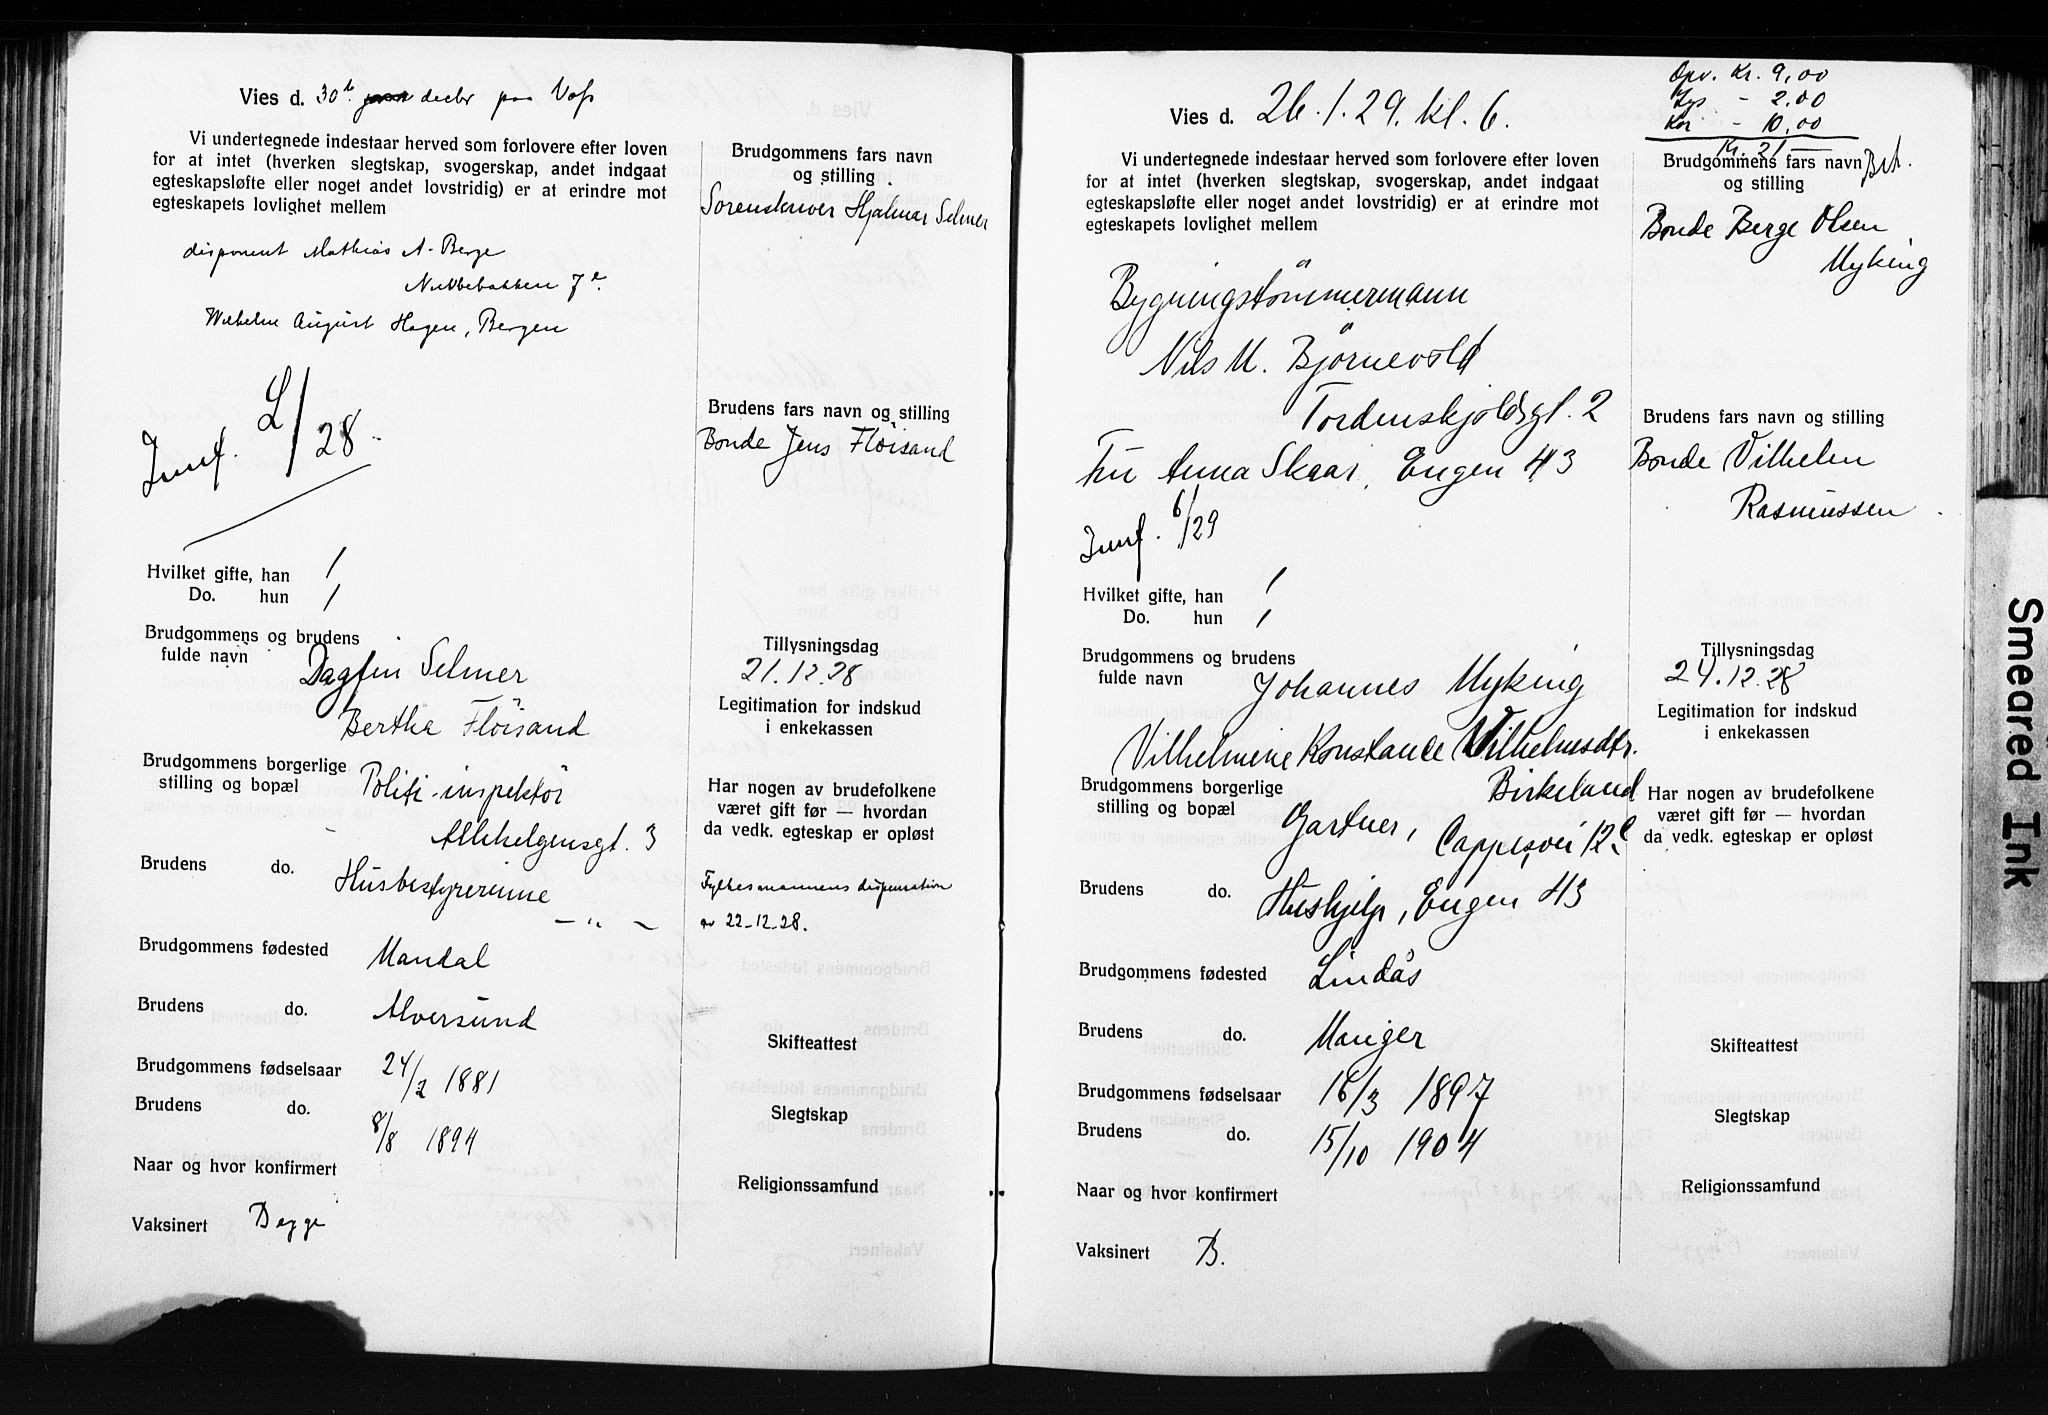 Vies d. 30te decbr paa Voss
Vi undertegnede indestaar herved som forlovere efter loven
for at intet (hverken slegtskap, svogerskap, andet indgaat
egteskapsløfte eller noget andet lovstridig) er at erindre mot
egteskapets lovlighet mellem
disponent Mathias A. Berge
Nubbebakken 7e
Wilhelm August Hagen, Bergen
L/28
Brudgommens fars navn
og stilling
Sorenskriver Hjalmar Selmer
Brudens fars navn og stilling
Bonde Jens Fløisand
Hvilket gifte, han 1
Do. hun 1
Brudgommens og brudens
fulde navn Dagfin Selmer
Bertha Fløisand
Brudgommens borgerlige
stilling og bopæl Politi-inspektör
Allehelgensgt. 3
Brudens do. Husbestyrerinne
— " —
Brudgommens fødested Mandal
Brudens do. Alversund
Brudgommens fødselsaar 24/2 1881
Brudens do. 8/8 1894
Naar og hvor konfirmert
Vaksinert Begge
Tillysningsdag
21.12.28
Legitimation for indskud
i enkekassen
Har nogen av brudefolkene
været gift før — hvordan
da vedk. egteskap er opløst
Fylkesmannens dispensation
av 22-12-28.
Skifteattest
Slegtskap
Religionssamfund
Vies d. 26.1.29. Kl. 6.
Opv. Kr. 9,00
Lys - 2.00
Kor - 10,00
Kr. 21 —
Vi undertegnede indestaar herved som forlovere efter loven
for at intet (hverken slegtskap, svogerskap, andet indgaat
egteskapsløfte eller noget andet lovstridig) er at erindre mot
egteskapets lovlighet mellem
Bygningstömmermann
Nils M. Björnevold
Tordenskjoldsgt. 2
Fru Anna Skaar, Engen 43
6/29
Brudgommens fars navn
og stilling
Bonde Berge Olsen
Myking
Brudens fars navn og stilling
Bonde Vilhelm
Rasmussen
Hvilket gifte, han 1
Do. hun 1
Brudgommens og brudens
fulde navn Johannes Myking
Vilhelmine Konstance Vilhelmsdtr.
Birkeland
Brudgommens borgerlige
stilling og bopæl Gartner, Cappesvei 12c
Brudens do. Hushjelp, Engen 43
Brudgommens fødested Lindås
Brudens do. Manger
Brudgommens fødselsaar 16/3 1897
Brudens do. 15/10 1904
Naar og hvor konfirmert
Vaksinert B.
Tillysningsdag
24.12.28
Legitimation for indskud
i enkekassen
Har nogen av brudefolkene
været gift før — hvordan
da vedk. egteskap er opløst
Skifteattest
Slegtskap
Religionssamfund
Smeared Ink